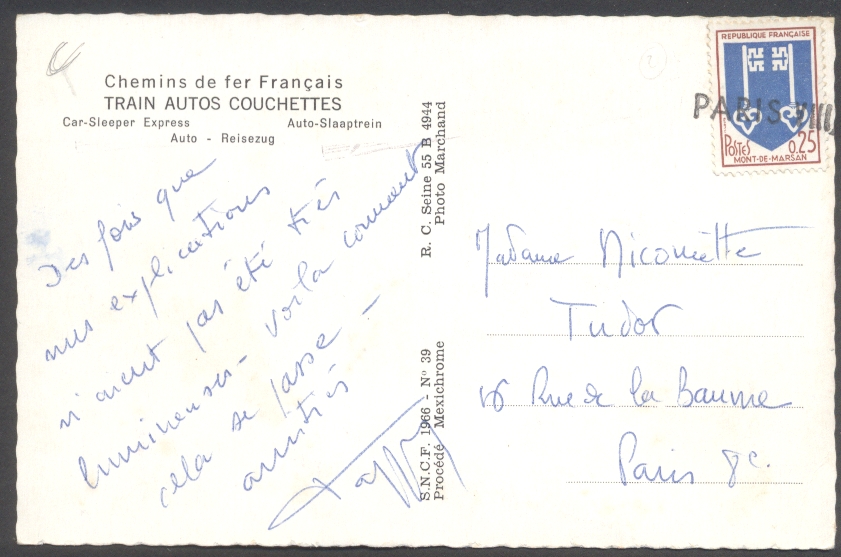 Chemins de fer Français
TRAIN AUTOS COUCHETTES
Car-Sleeper Express Auto-Slaaptrein
Auto - Reisezug
Des fois que
mes explications
n'aient pas été très
lumineuses - voilà comment
cela se passe -
amitiés
R. C. Seine 55 B 4944
Photo Marchand
S.N.C.F. 1966 - No 39
Procédé Mexichrome
REPUBLIQUE FRANÇAISE
POSTES 0.25
MONT-DE-MARSAN
PARIS VIII
Madame Nicolette
Tudor
16 Rue de la Baume
Paris 8e.